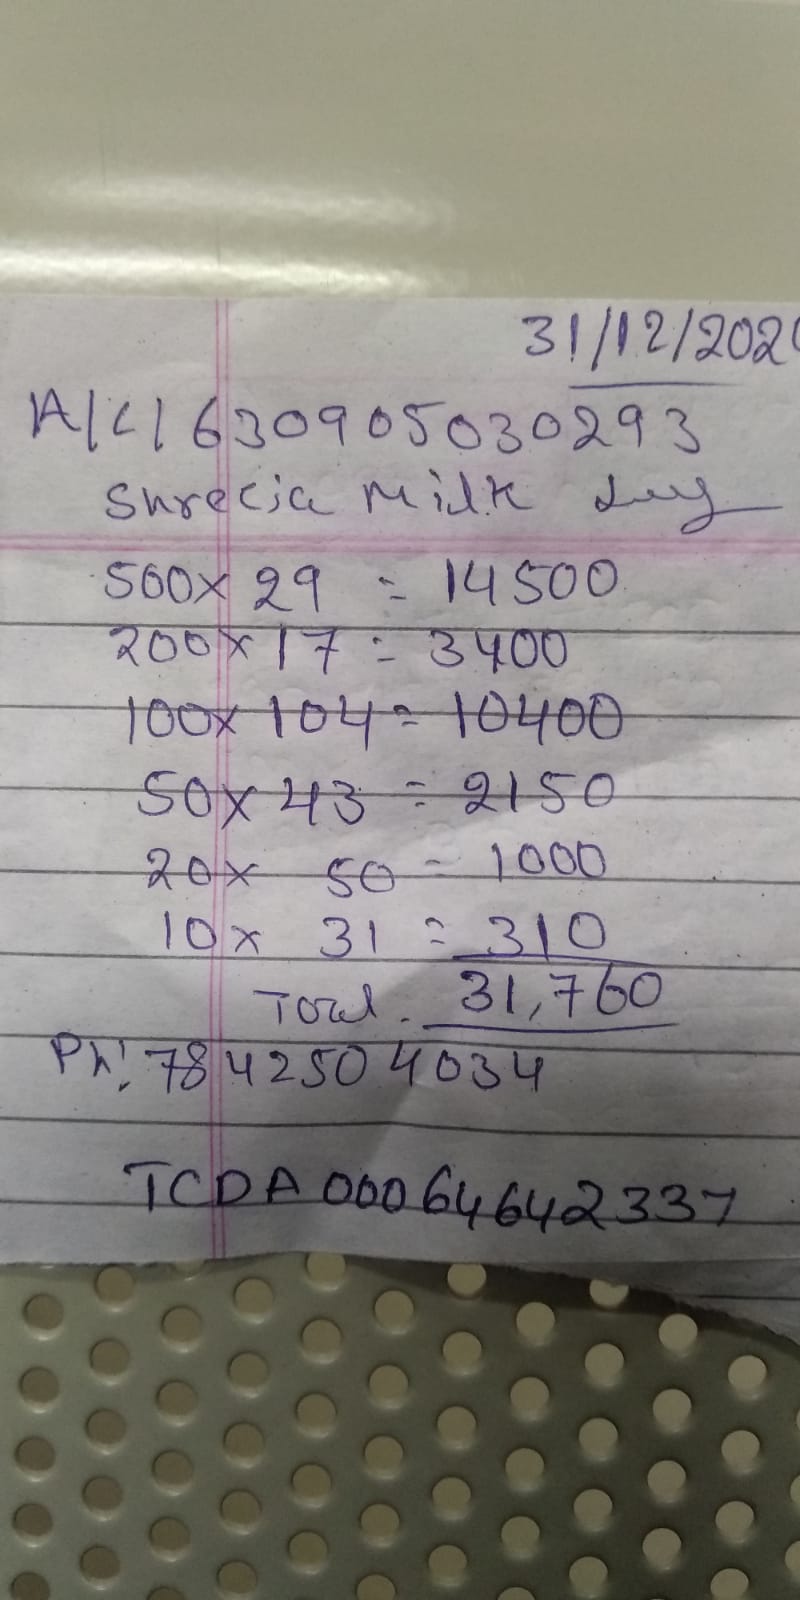 31/12/2020
A/C/ 630905030293
Milk
500 x 29 = 14500
200 x 17 = 3400
100 x 104 = 10400
50 x 43 = 2150
20 x 50 = 1000
10 x 31 = 310
Total. 31,760
Ph: 7842504034
TCDA00064642337